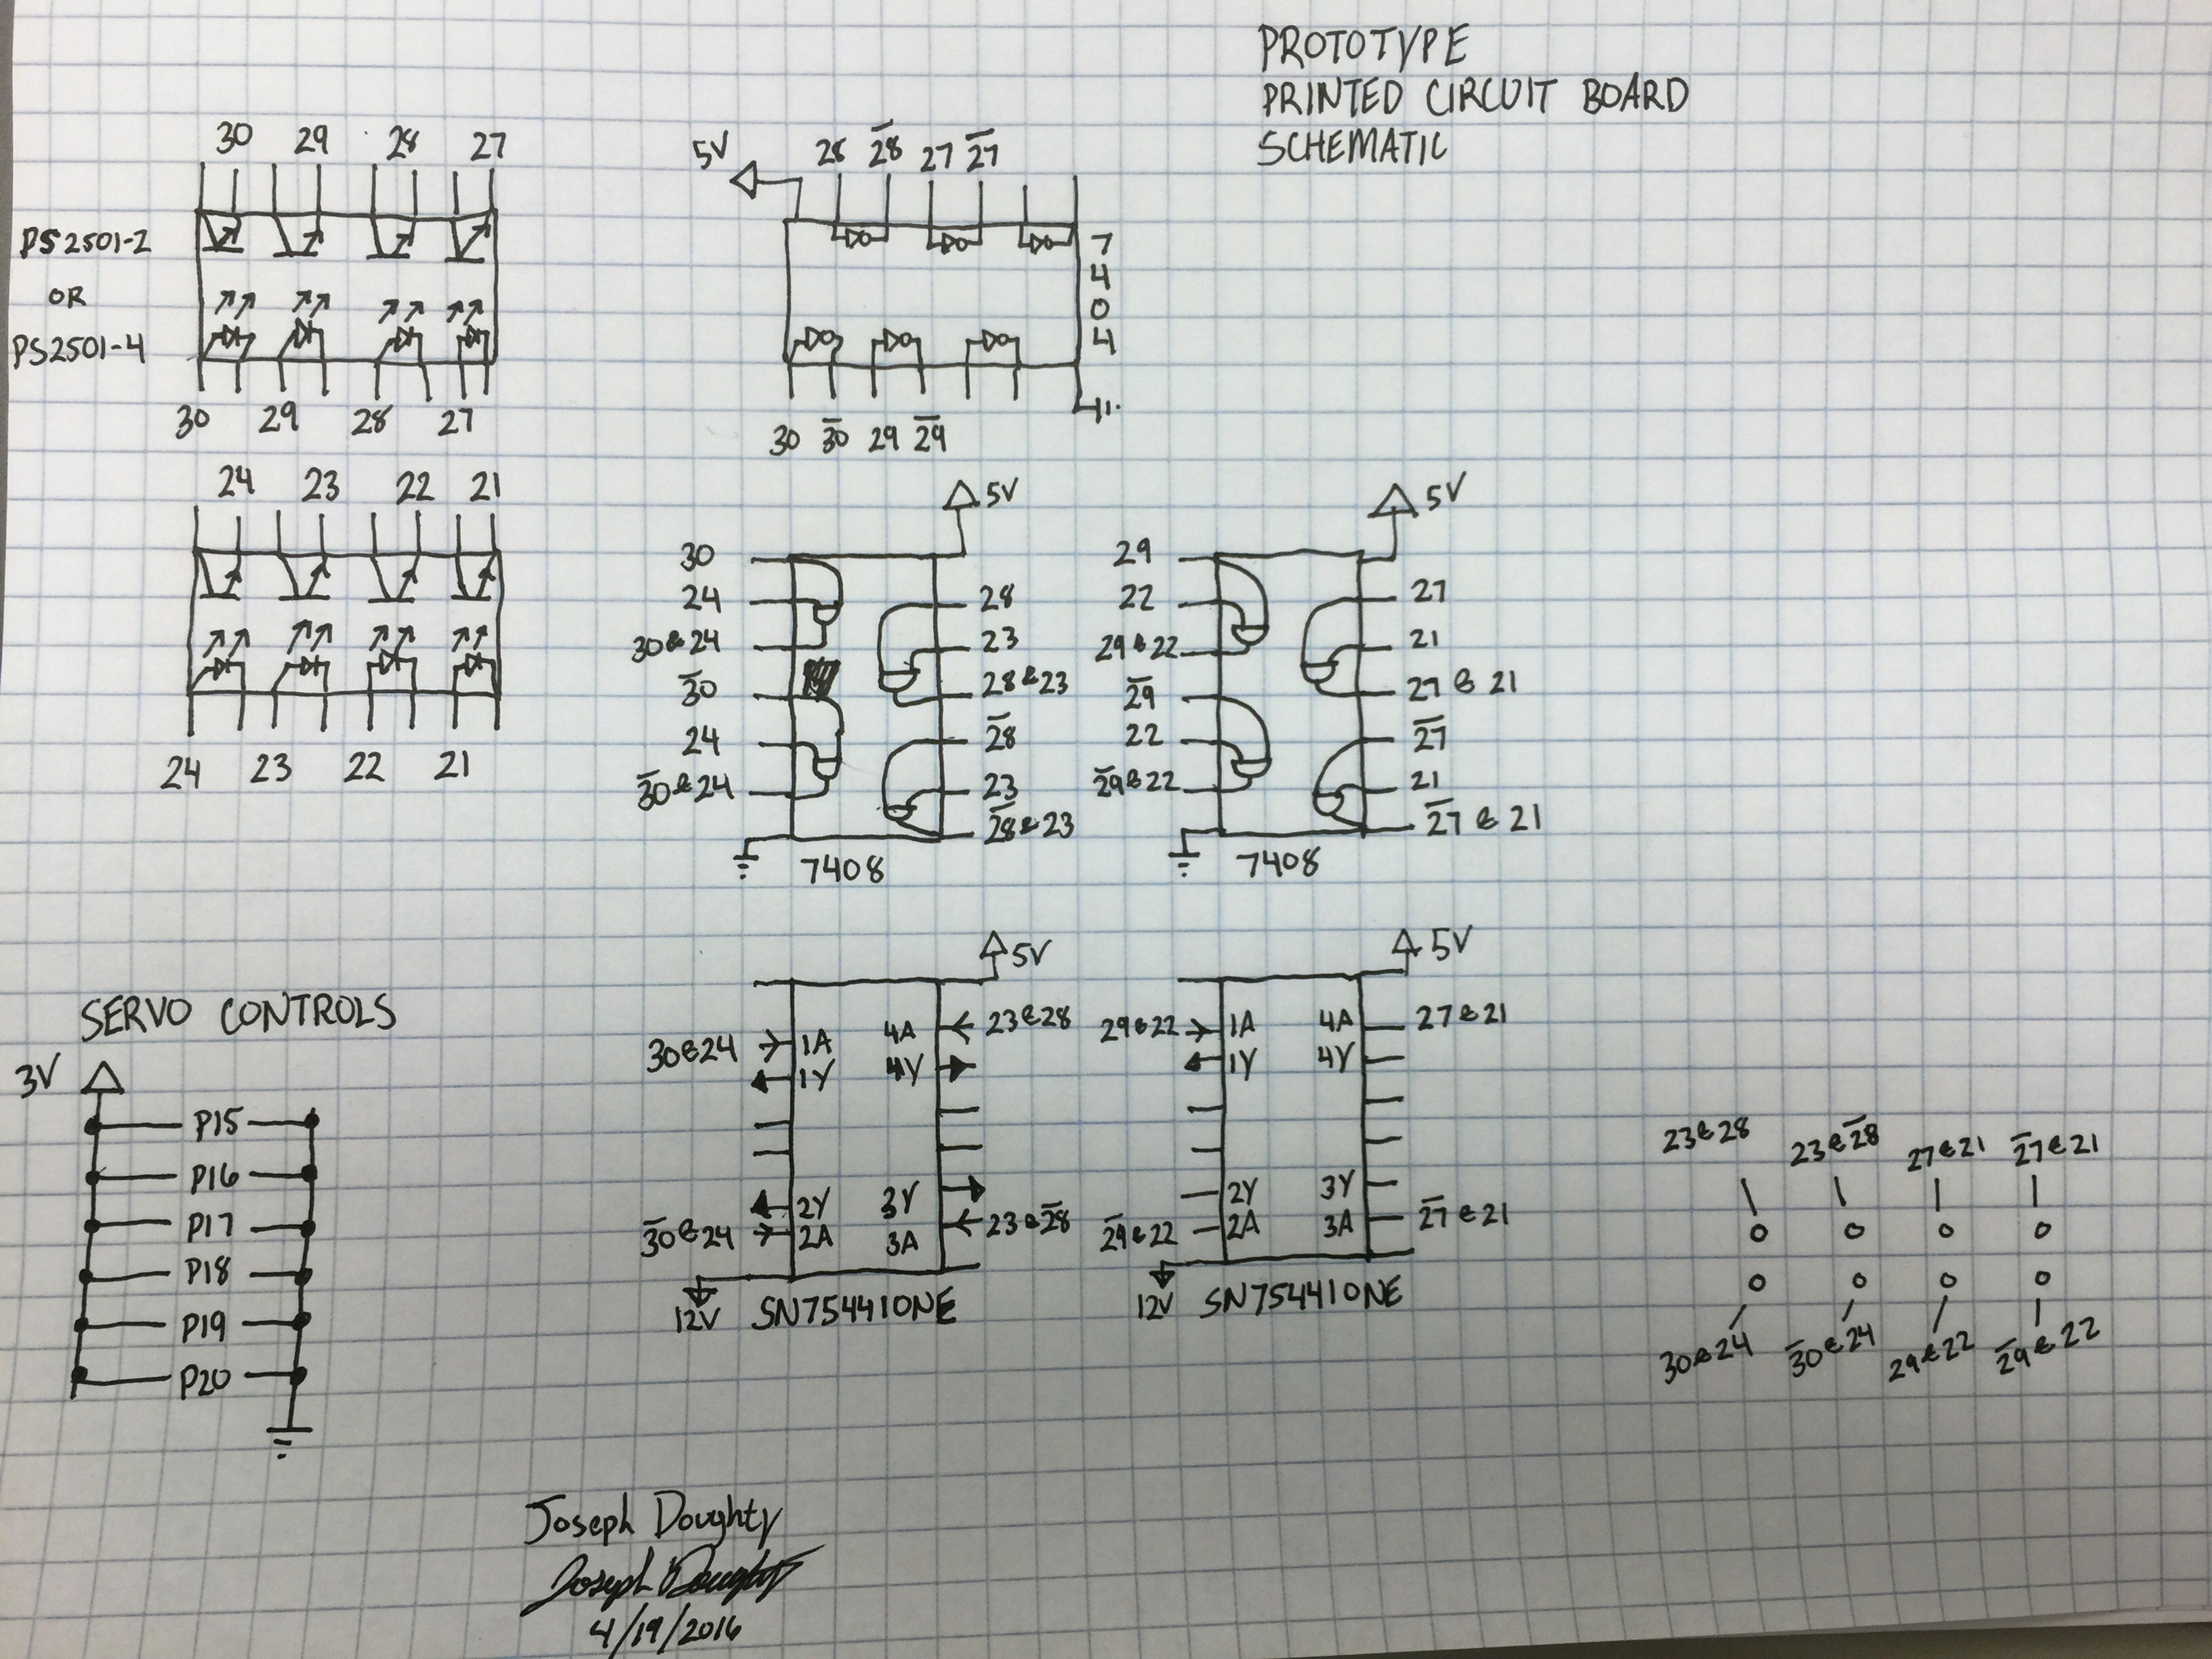 PROTOTYPE
PRINTED CIRCUIT BOARD
SCHEMATIC
30 29 28 27
PS2501-2
OR
PS2501-4
30 29 28 27
5V 28 2̅8̅ 27 2̅7̅
7
4
0
4
30 3̅0̅ 29 2̅9̅
24 23 22 21
24 23 22 21
5V
30
24
30&24
3̅0̅
24
3̅0̅&24
28
23
28&23
2̅8̅
23
2̅8̅&23
7408
5V
29
22
29&22
2̅9̅
22
2̅9̅&22
27
21
27&21
2̅7̅
21
2̅7̅&21
7408
SERVO CONTROLS
3V
P15
P16
P17
P18
P19
P20
5V
30&24 1A 4A 23&28
1Y 4Y
2Y 3Y
3̅0̅&24 2A 3A 23&2̅8̅
12V SN754410NE
5V
29&22 1A 4A 27&21
1Y 4Y
2Y 3Y
2̅9̅&22 2A 3A 2̅7̅&21
12V SN754410NE
23&28 23&2̅8̅ 27&21 2̅7̅&21
30&24 3̅0̅&24 29&22 2̅9̅&22
Joseph Doughty
Joseph Doughty
4/19/2016